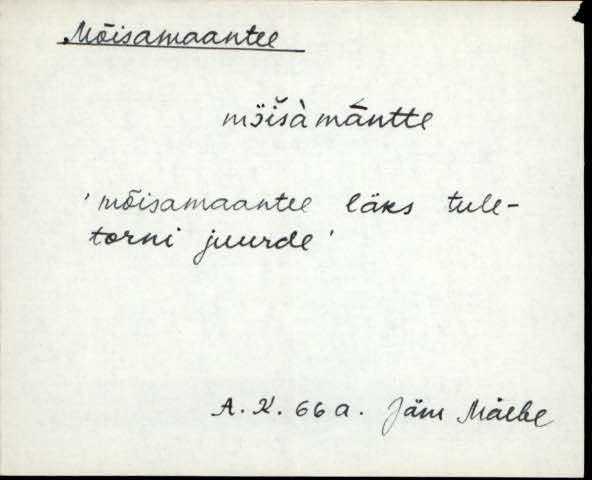 Mõisamaantee
möišà mā́ntte
'mõisamaantee läks tule-
torni juurde'
A. K. 66 a. Jäm Mäebe